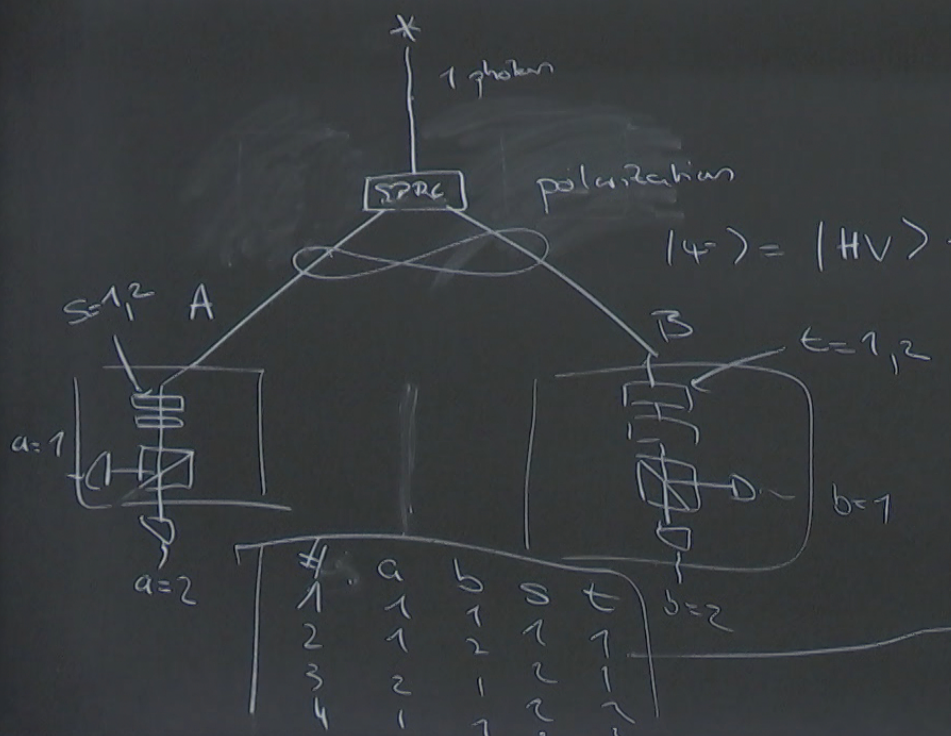 1 photon
SPDC
polarization
|Ψ-⟩ = |HV⟩
s=1,2
A
B
t=1,2
a=1
b=1
a=2
b=2
# a b s t
1 1 1 1 1
2 1 2 2 1
3 2 1 2 2
4 1